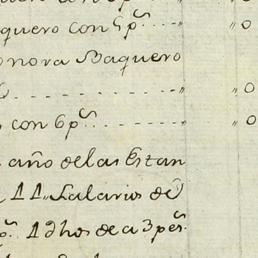 quero con 5 p.s " 0
onora Baquero
" 0
con 6 p.s " 0
año de las Estan
11 " Salarios de
p.s 1 dhos de a 3 pes.